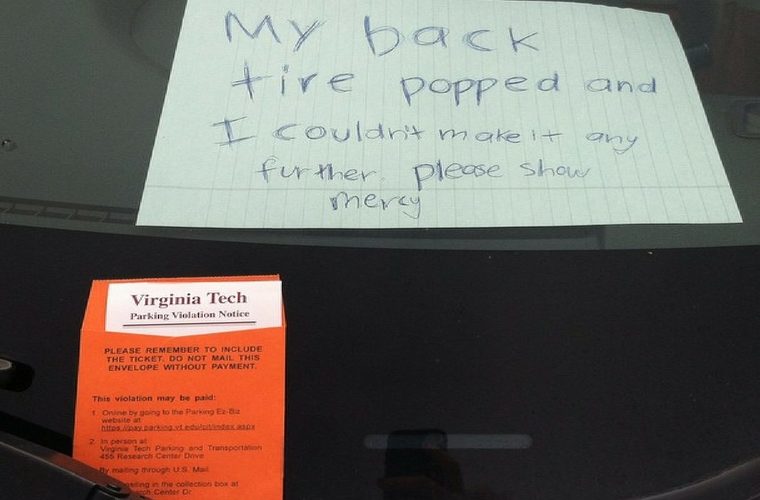 My back
tire popped and
I couldn't make it any
further. please show
mercy
Virginia Tech
Parking Violation Notice
PLEASE REMEMBER TO INCLUDE
THE TICKET. DO NOT MAIL THIS
ENVELOPE WITHOUT PAYMENT.
This violation may be paid:
1. Online by going to the Parking Ez-Biz
website at
2. In person at
Virginia Tech Parking and Transportation
455 Research Center Drive
By mailing through U.S. Mail
in the collection box at
Center Dr